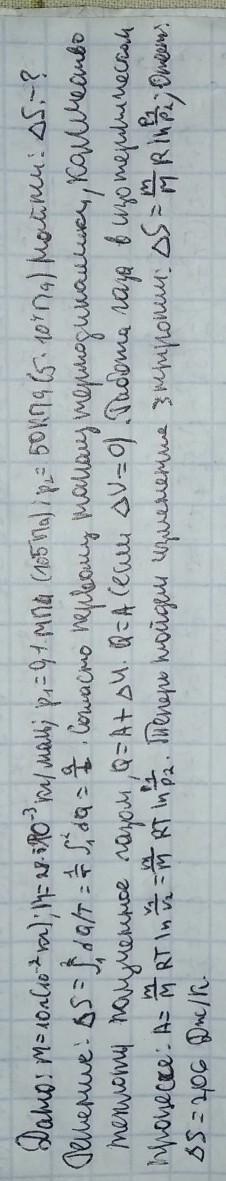 Дано: m=10г(10⁻² кг); M=28·10⁻³ кг/моль; p₁=0,1 МПа (10⁵Па); p₂=50кПа(5·10⁴Па) Найти: ΔS-?
Решение: ΔS=∫₁² dQ/T = 1/T ∫₁² dQ = Q/T. Согласно первому началу термодинамики, количество
теплоты полученное газом, Q=A+ΔU. Q=A (если ΔU=0). Работа газа в изотермическом
процессе: A= m/M RT ln V₂/V₁ = m/M RT ln p₁/p₂. Теперь найдем изменение энтропии: ΔS= m/M R ln p₁/p₂; Ответ:
ΔS=2,06 Дж/К.